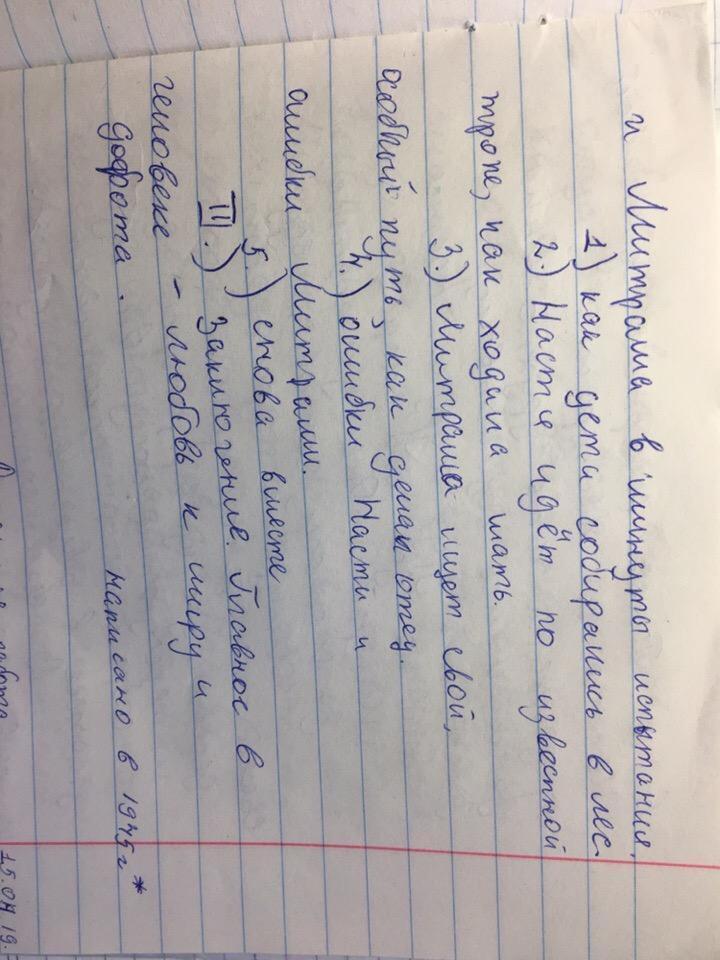 и Митраша в минуты испытания.
1) как дети собирались в лес
2.) Настя идёт по известной
тропе, как ходила мать.
3.) Митраша ищет свой,
особый путь, как делал отец.
4.) ошибки Насти и
ошибки Митраши.
5.) снова вместе
III.) Заключение. Главное в
человеке - любовь к миру и
доброта.
написано в 1945г*
15.04.19.
работа